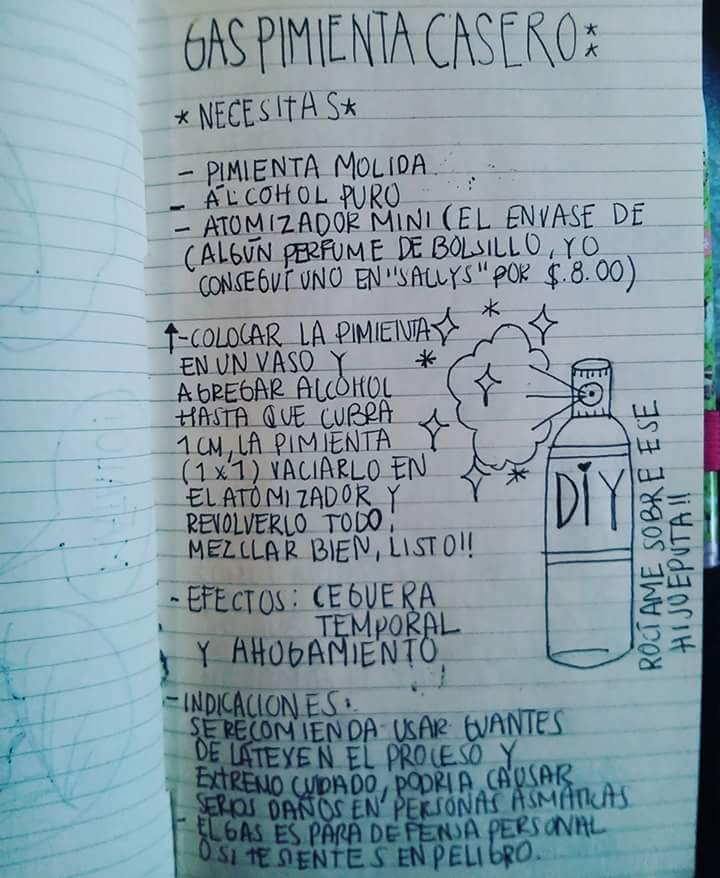 GAS PIMIENTA CASERO:
* NECESITAS *
- PIMIENTA MOLIDA
- ALCOHOL PURO
- ATOMIZADOR MINI (EL ENVASE DE
(ALGÚN PERFUME DE BOLSILLO, YO
CONSEGUÍ UNO EN "SALLYS" POR $.8.00)
↑-COLOCAR LA PIMIENTA
EN UN VASO Y
AGREGAR ALCOHOL
HASTA QUE CUBRA
1 CM, LA PIMIENTA
(1x1) VACIARLO EN
EL ATOMIZADOR Y
REVOLVERLO TODO,
MEZCLAR BIEN, LISTO!!
DiY
ROCÍAME SOBRE ESE
HIJUEPUTA!!
- EFECTOS: CEGUERA
TEMPORAL
Y AHOGAMIENTO,
- INDICACIONES:
SE RECOMIENDA USAR GUANTES
DE LÁTEX EN EL PROCESO Y
EXTREMO CUIDADO, PODRÍA CAUSAR
SERIOS DAÑOS EN PERSONAS ASMÁTICAS
- EL GAS ES PARA DEFENSA PERSONAL
O SI TE SIENTES EN PELIGRO.